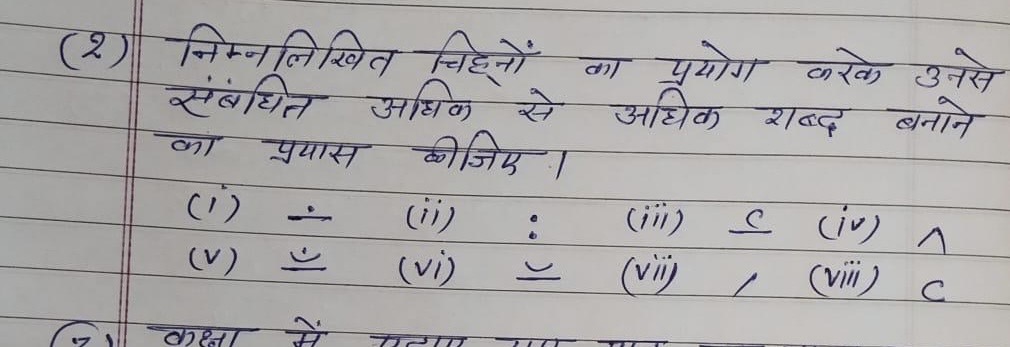 (2) निम्नलिखित चिह्नों का प्रयोग करके उनसे
संबंधित अधिक से अधिक शब्द बनाने
का प्रयास कीजिए।
(i) ∸ (ii) : (iii) ८ (iv) ^
(v) ँ (vi) ॅ (vii) ⸝ (viii) c
कक्षा में